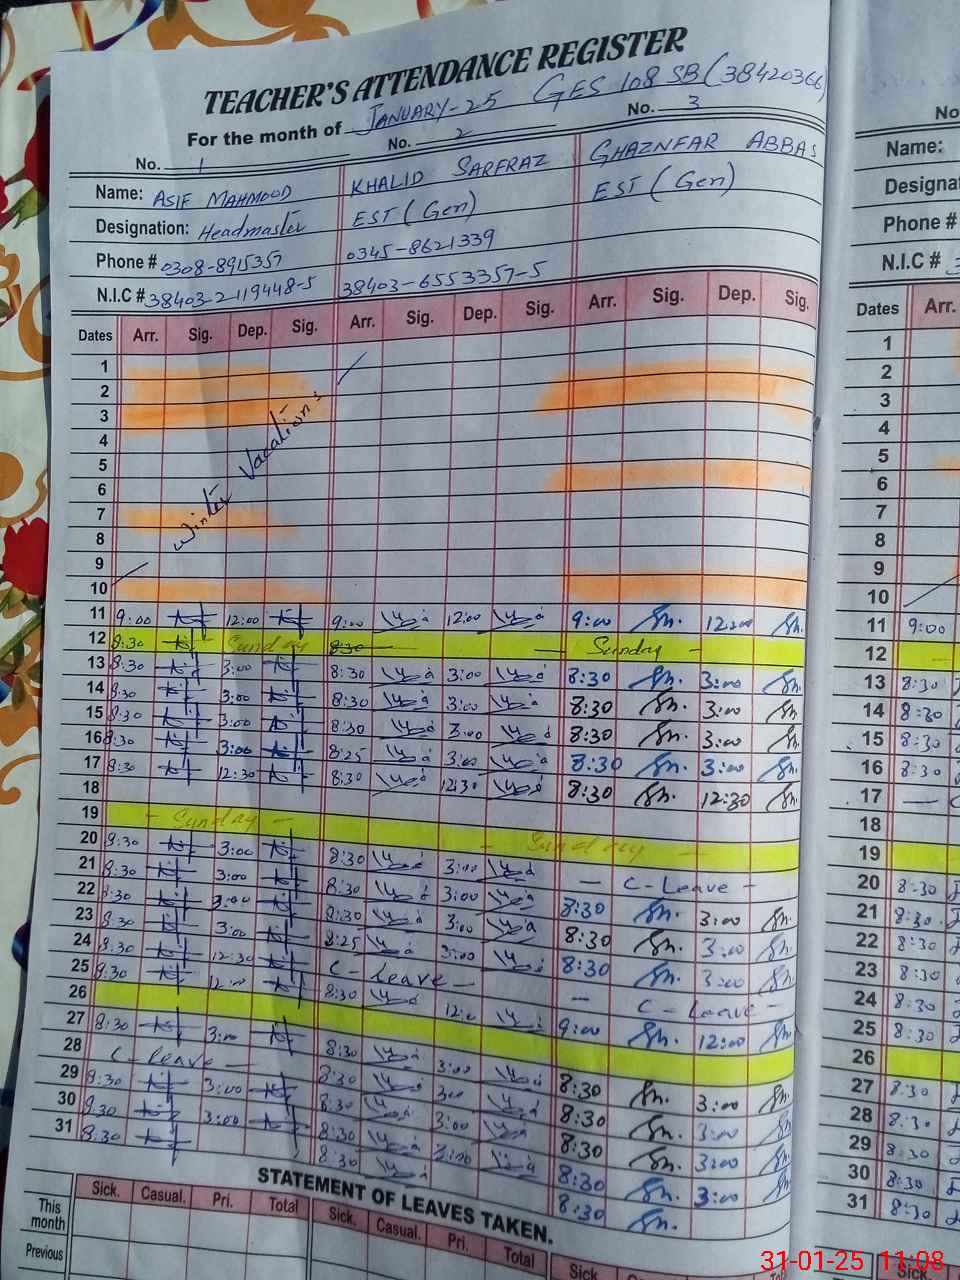 TEACHER'S ATTENDANCE REGISTER
For the month of JANUARY-25 GES 108 SB (38420366)
No. 1 No. 2 No. 3
Name: ASIF MAHMOOD KHALID SARFRAZ GHAZNFAR ABBAS
Designation: Headmaster EST (Gen) EST (Gen)
Phone # 0308-8915357 0345-8621339
N.I.C # 38403-2119448-5 38403-6553357-5
Dates Arr. Sig. Dep. Sig. Arr. Sig. Dep. Sig. Arr. Sig. Dep. Sig.
1
2
3
4
5
6
7
8
9
10
Winter Vacations
11 9:00 12:00 9:00 12:00 9:00 12:00
12 8:30 Sunday 8:30 Sunday
13 8:30 3:00 8:30 3:00 8:30 3:00
14 8:30 3:00 8:30 3:00 8:30 3:00
15 8:30 3:00 8:30 3:00 8:30 3:00
16 8:30 3:00 8:25 3:00 8:30 3:00
17 8:30 12:30 8:30 12:30 8:30 12:30
18
19 - Sunday - - Sunday -
20 8:30 3:00 8:30 3:00 - C-Leave -
21 8:30 3:00 8:30 3:00 8:30 3:00
22 8:30 3:00 8:30 3:00 8:30 3:00
23 8:30 3:00 8:25 3:00 8:30 3:00
24 8:30 12:30 C-Leave - - C-Leave -
25 8:30 12:00 8:30 9:00 12:00
26
27 8:30 3:00 8:30 3:00 8:30 3:00
28 C-leave - 8:30 3:00 8:30 3:00
29 8:30 3:00 8:30 3:00 8:30 3:00
30 8:30 3:00 8:30 3:00 8:30 3:00
31 8:30 8:30 8:30
STATEMENT OF LEAVES TAKEN.
Sick. Casual. Pri. Total Sick. Casual. Pri. Total Sick
This month
Previous
No
Name:
Designa
Phone #
N.I.C #
Dates Arr.
1
2
3
4
5
6
7
8
9
10
11 9:00
12
13 8:30
14 8:30
15 8:30
16 8:30
17
18
19
20 8:30
21 8:30
22 8:30
23 8:30
24 8:30
25 8:30
26
27 8:30
28 8:30
29 8:30
30 8:30
31 8:30
Sick
31-01-25 11:08